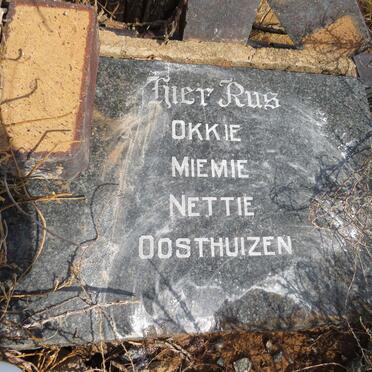 Hier Rus
OKKIE
MIEMIE
NETTIE
OOSTHUIZEN